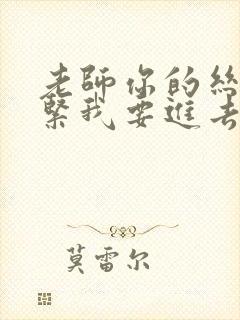 老師你的絲
緊我要進去
莫雷尔